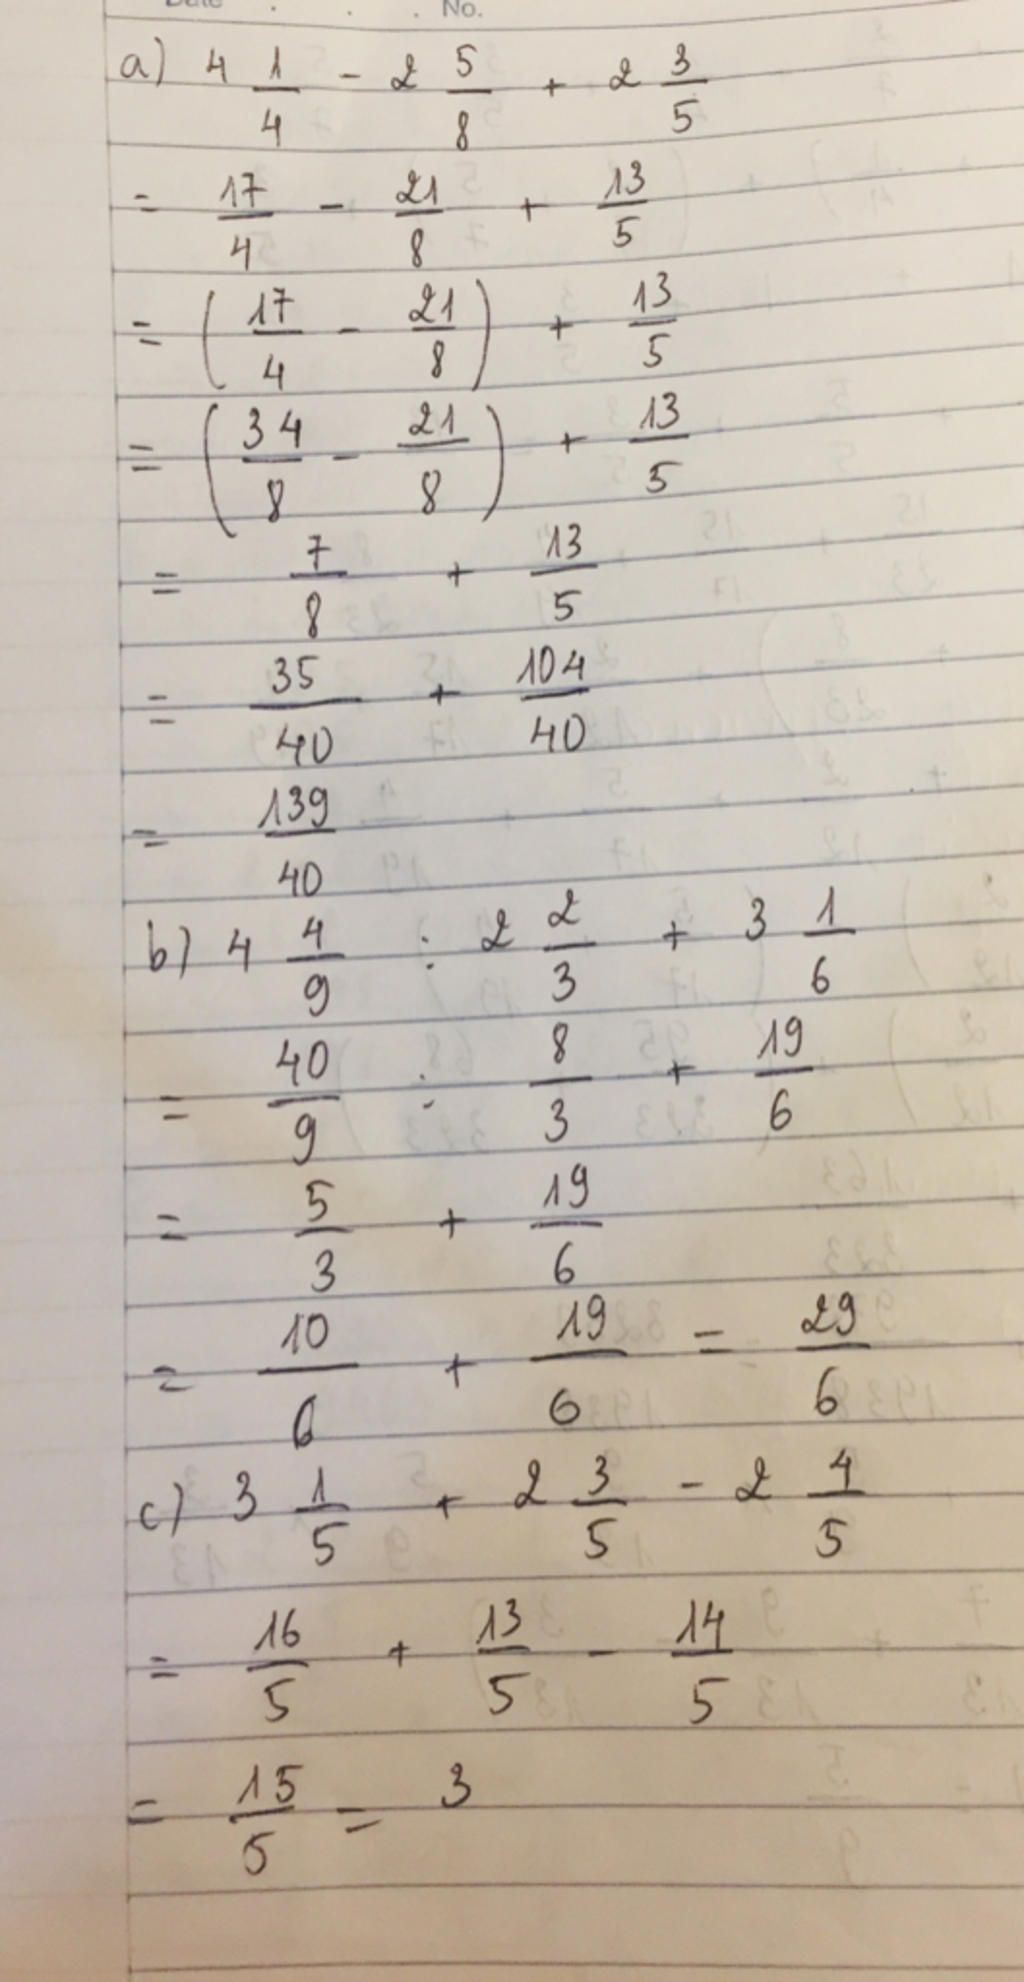 Date . . . No.
a) 4 1/4 - 2 5/8 + 2 3/5
= 17/4 - 21/8 + 13/5
= (17/4 - 21/8) + 13/5
= (34/8 - 21/8) + 13/5
= 7/8 + 13/5
= 35/40 + 104/40
= 139/40
b) 4 4/9 : 2 2/3 + 3 1/6
= 40/9 : 8/3 + 19/6
= 5/3 + 19/6
= 10/6 + 19/6 = 29/6
c) 3 1/5 + 2 3/5 - 2 4/5
= 16/5 + 13/5 - 14/5
= 15/5 = 3